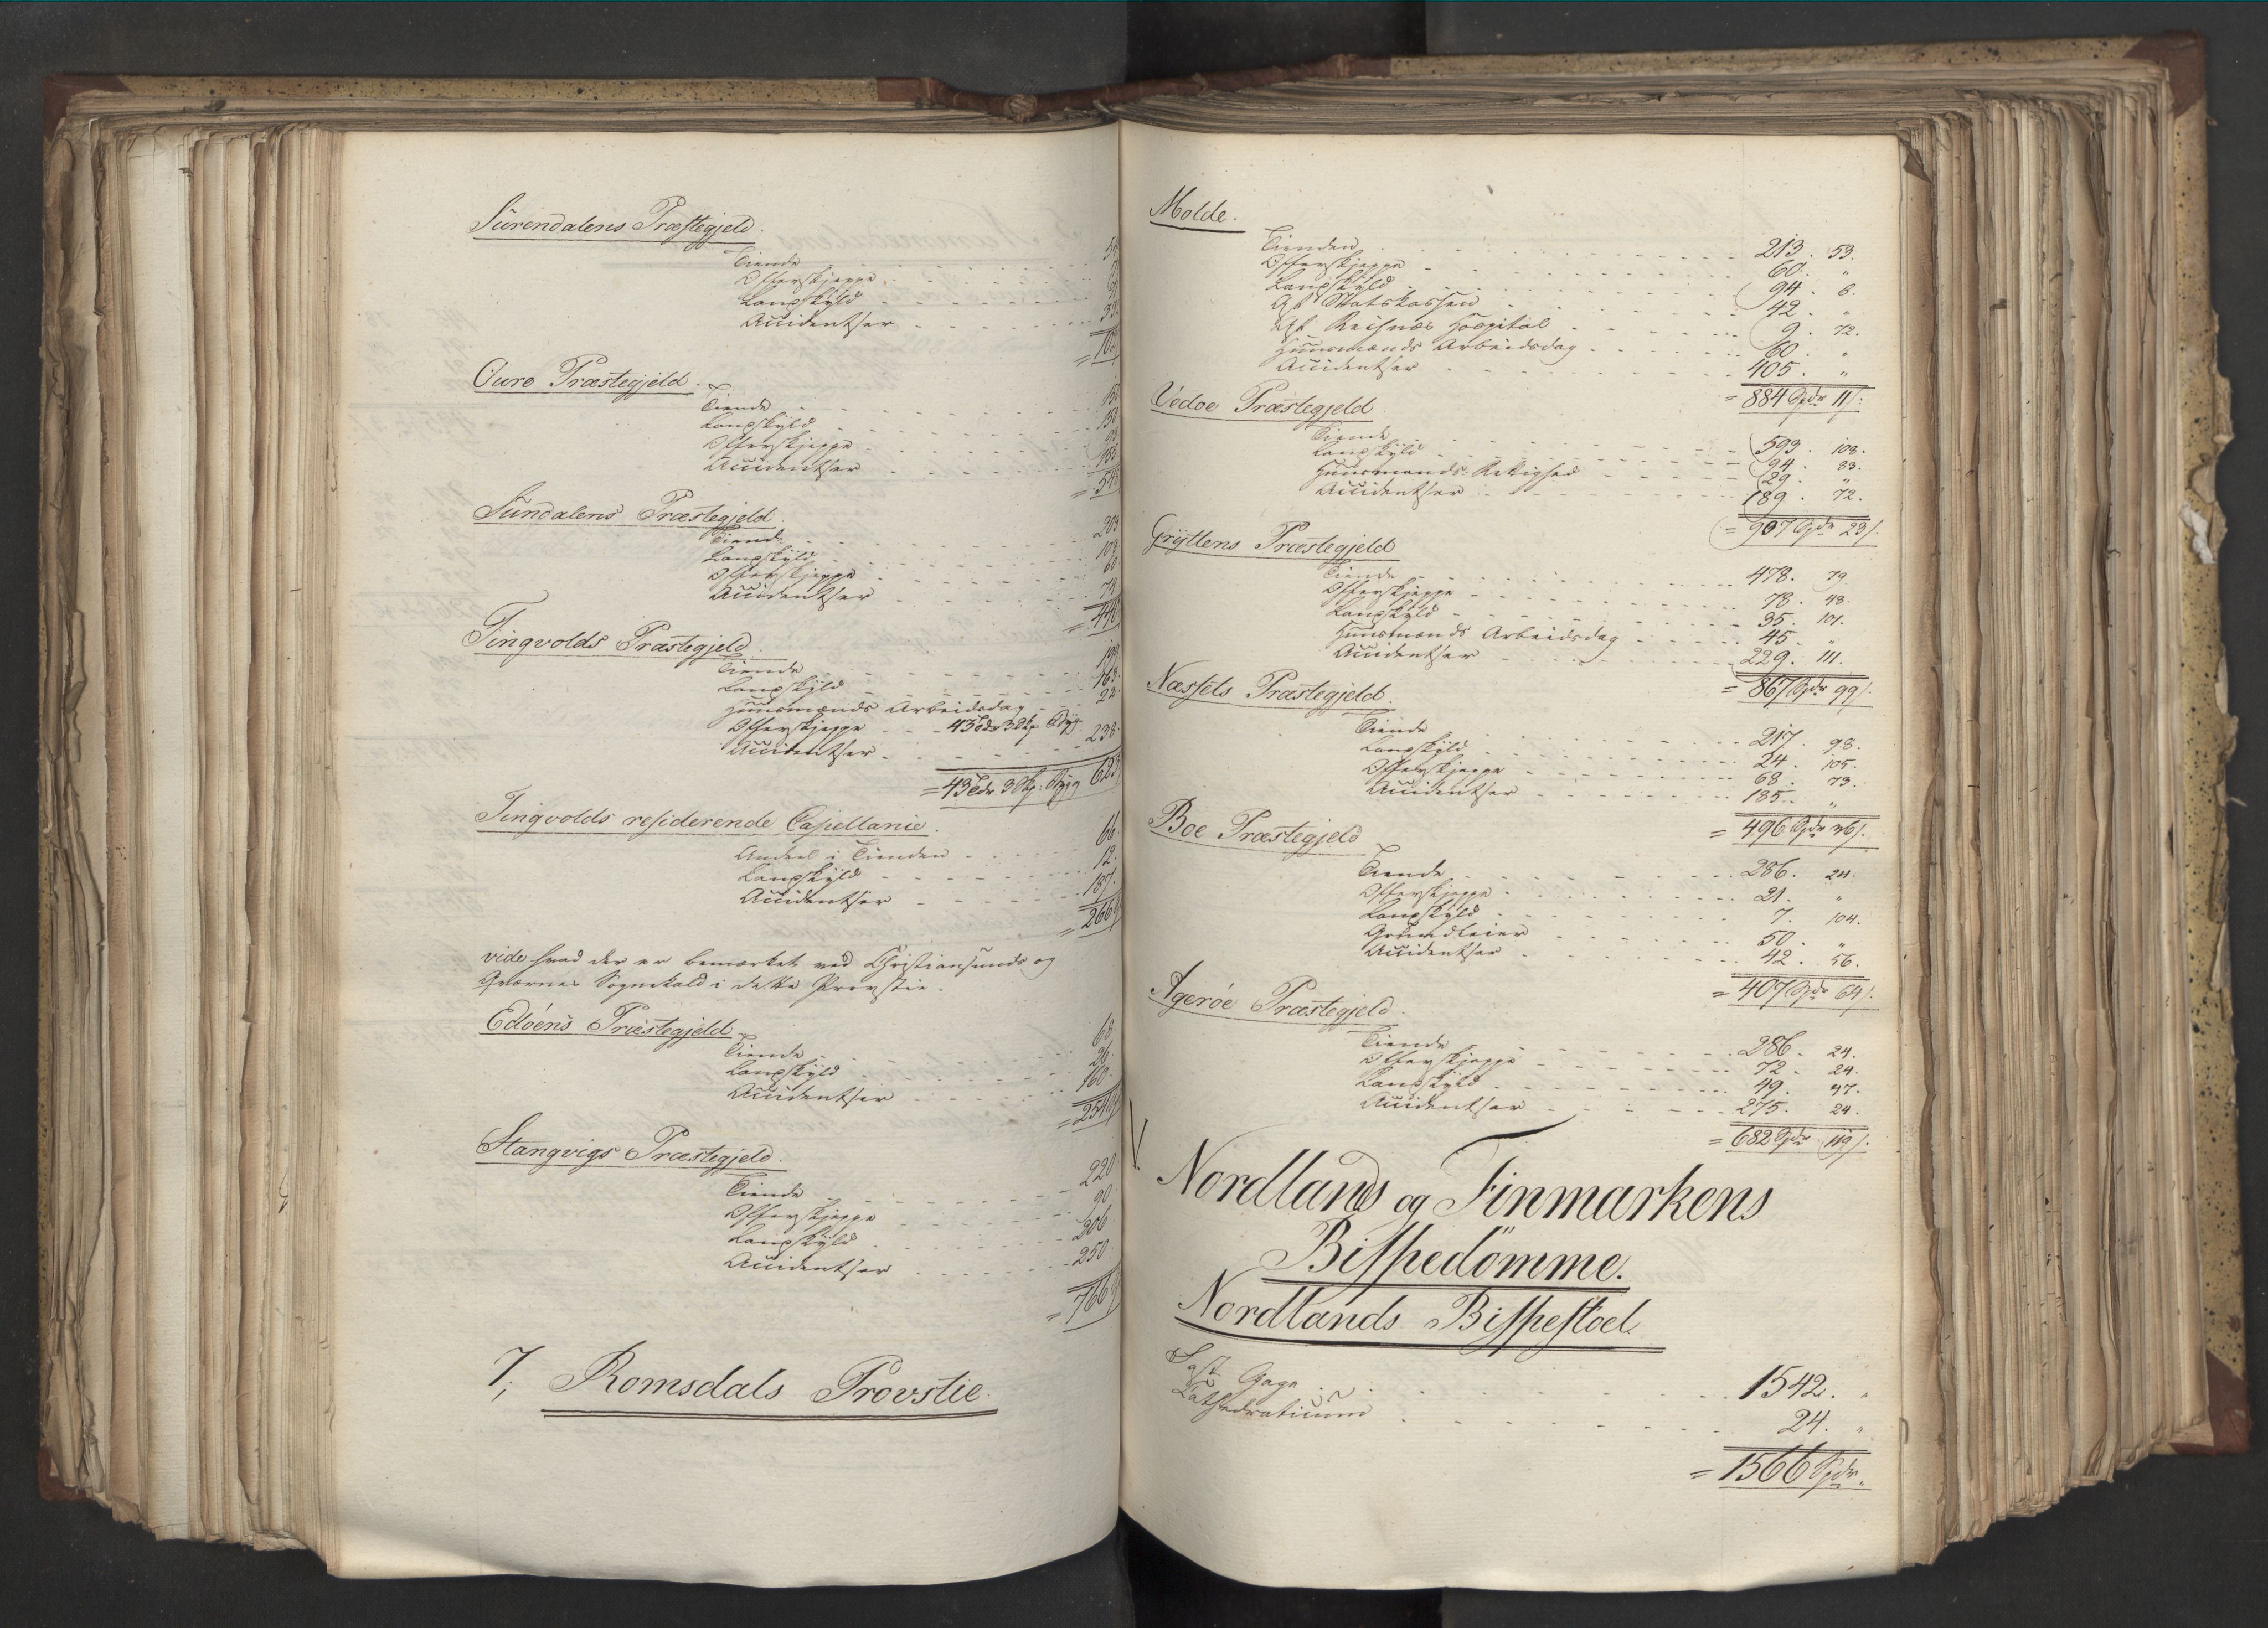 Surendalens Præstegjeld.
Tiende
Offerskjeppe
Landskyld
Accidentser
Oure Præstegjeld.
Tiende 150
Landskyld 150
Offerskjeppe
Accidentser
Sundalens Præstegjeld.
Tiende 203
Landskyld 108
Offerskjeppe 60
Accidentser 74
Tingvolds Præstegjeld.
Tiende
Landskyld 163
Huusmænds Arbeidsdag 22
Offerskjeppe 43 Tdr 3 Skp. Byg
Accidentser 238
= 43 Tdr 3 Skp. Byg 623
Tingvolds residerende Capellanie.
Andeel i Tienden 66.
Landskyld 12.
Accidentser 187.
= 266
vide hvad der er bemærket ved Christiansunds og
Qværnes Sognekald i dette Provstie.
Edöens Præstegjeld
Tiende 68
Landskyld 26
Accidentser 160.
= 254
Stangvigs Præstegjeld.
Tiende 220
Offerskjeppe 90
Landskyld 206
Accidentser 250.
= 766
7, Romsdals Provstie.
Molde.
Tienden 213. 53.
Offerskjeppe 60. "
Landskyld 94. 6.
Af Statskassen 42. "
Af Reitnes Hospital 9. 72.
Huusmænds Arbeidsdag 60. "
Accidentser 405. "
= 884 Spdr 11/.
Vedöe Præstegjeld
Tiende 593. 108.
Landskyld 94. 83.
Huusmands Rettighed 29. "
Accidentser 189. 72.
= 907 Spdr 23/.
Gryttens Præstegjeld
Tiende 478. 79.
Offerskjeppe 78. 48.
Landskyld 35. 101.
Huusmænds Arbeidsdag 45. "
Accidentser 229. 111.
= 867 Spdr 99/.
Næssets Præstegjeld.
Tiende 217. 98.
Landskyld 24. 105.
Offerskjeppe 68. 73.
Accidentser 185. "
= 496 Spdr 36/.
Boe Præstegjeld
Tiende 286. 24.
Offerskjeppe 21. "
Landskyld 7. 104.
Grundleier 50. "
Accidentser 42. 56.
= 407 Spdr 64/.
Ageröe Præstegjeld.
Tiende 286. 24.
Offerskjeppe 72. 24.
Landskyld 49. 47.
Accidentser 275. 24.
= 682 Spdr 119/.
Nordlands og Finmarkens
Bispedömme.
Nordlands Bispestoel.
Fast Gage 1542. "
Cathedraticum 24. "
= 1566 Spdr "